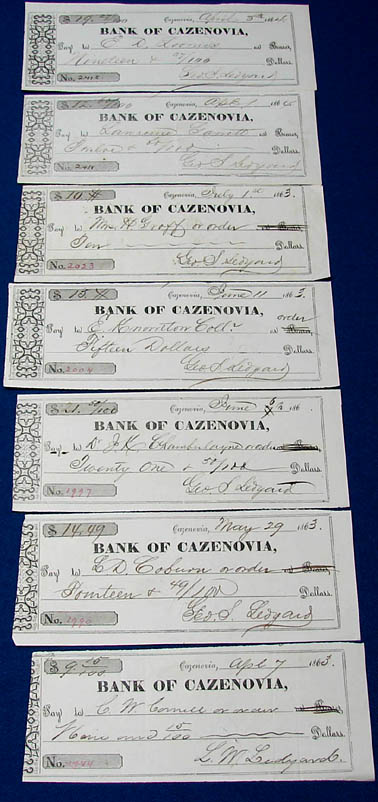 $ 19. 57/100 Cazenovia, April 3d 186
BANK OF CAZENOVIA,
Pay to E. D. or Bearer,
Nineteen & 57/100 Dollars.
No. 2412 Geo. S. Ledyard
$ 12. /100 Cazenovia, Apl 1 186
BANK OF CAZENOVIA,
Pay to or Bearer,
Twelve & /100 Dollars.
No. 2411 Geo S Ledyard
$ 10. Cazenovia, July 1st 1863.
BANK OF CAZENOVIA,
Pay to Wm H Groff or order or Bearer,
Ten Dollars.
No. 2023 Geo S Ledyard
$ 15. Cazenovia, June 11 1863
BANK OF CAZENOVIA,
order
Pay to E. Knowlton Collr or Bearer,
Fifteen Dollars Dollars.
No. 2004 Geo S Ledyard
$ 21. 50/100 Cazenovia, June 186
BANK OF CAZENOVIA,
Pay to Dr J K Chamberlayne or order
Twenty One & 50/100 Dollars.
No. 1997 Geo S Ledyard
$ 14.49 Cazenovia, May 29 1863.
BANK OF CAZENOVIA,
Pay to L D Coburn or order
Fourteen & 49/100 Dollars.
No. 1990 Geo. S. Ledyard
$ 9. 15/100 Cazenovia, Apl 7 1863.
BANK OF CAZENOVIA,
Pay to C W or order
Nine and 15/100 Dollars.
No. 1944 L. W. Ledyard.